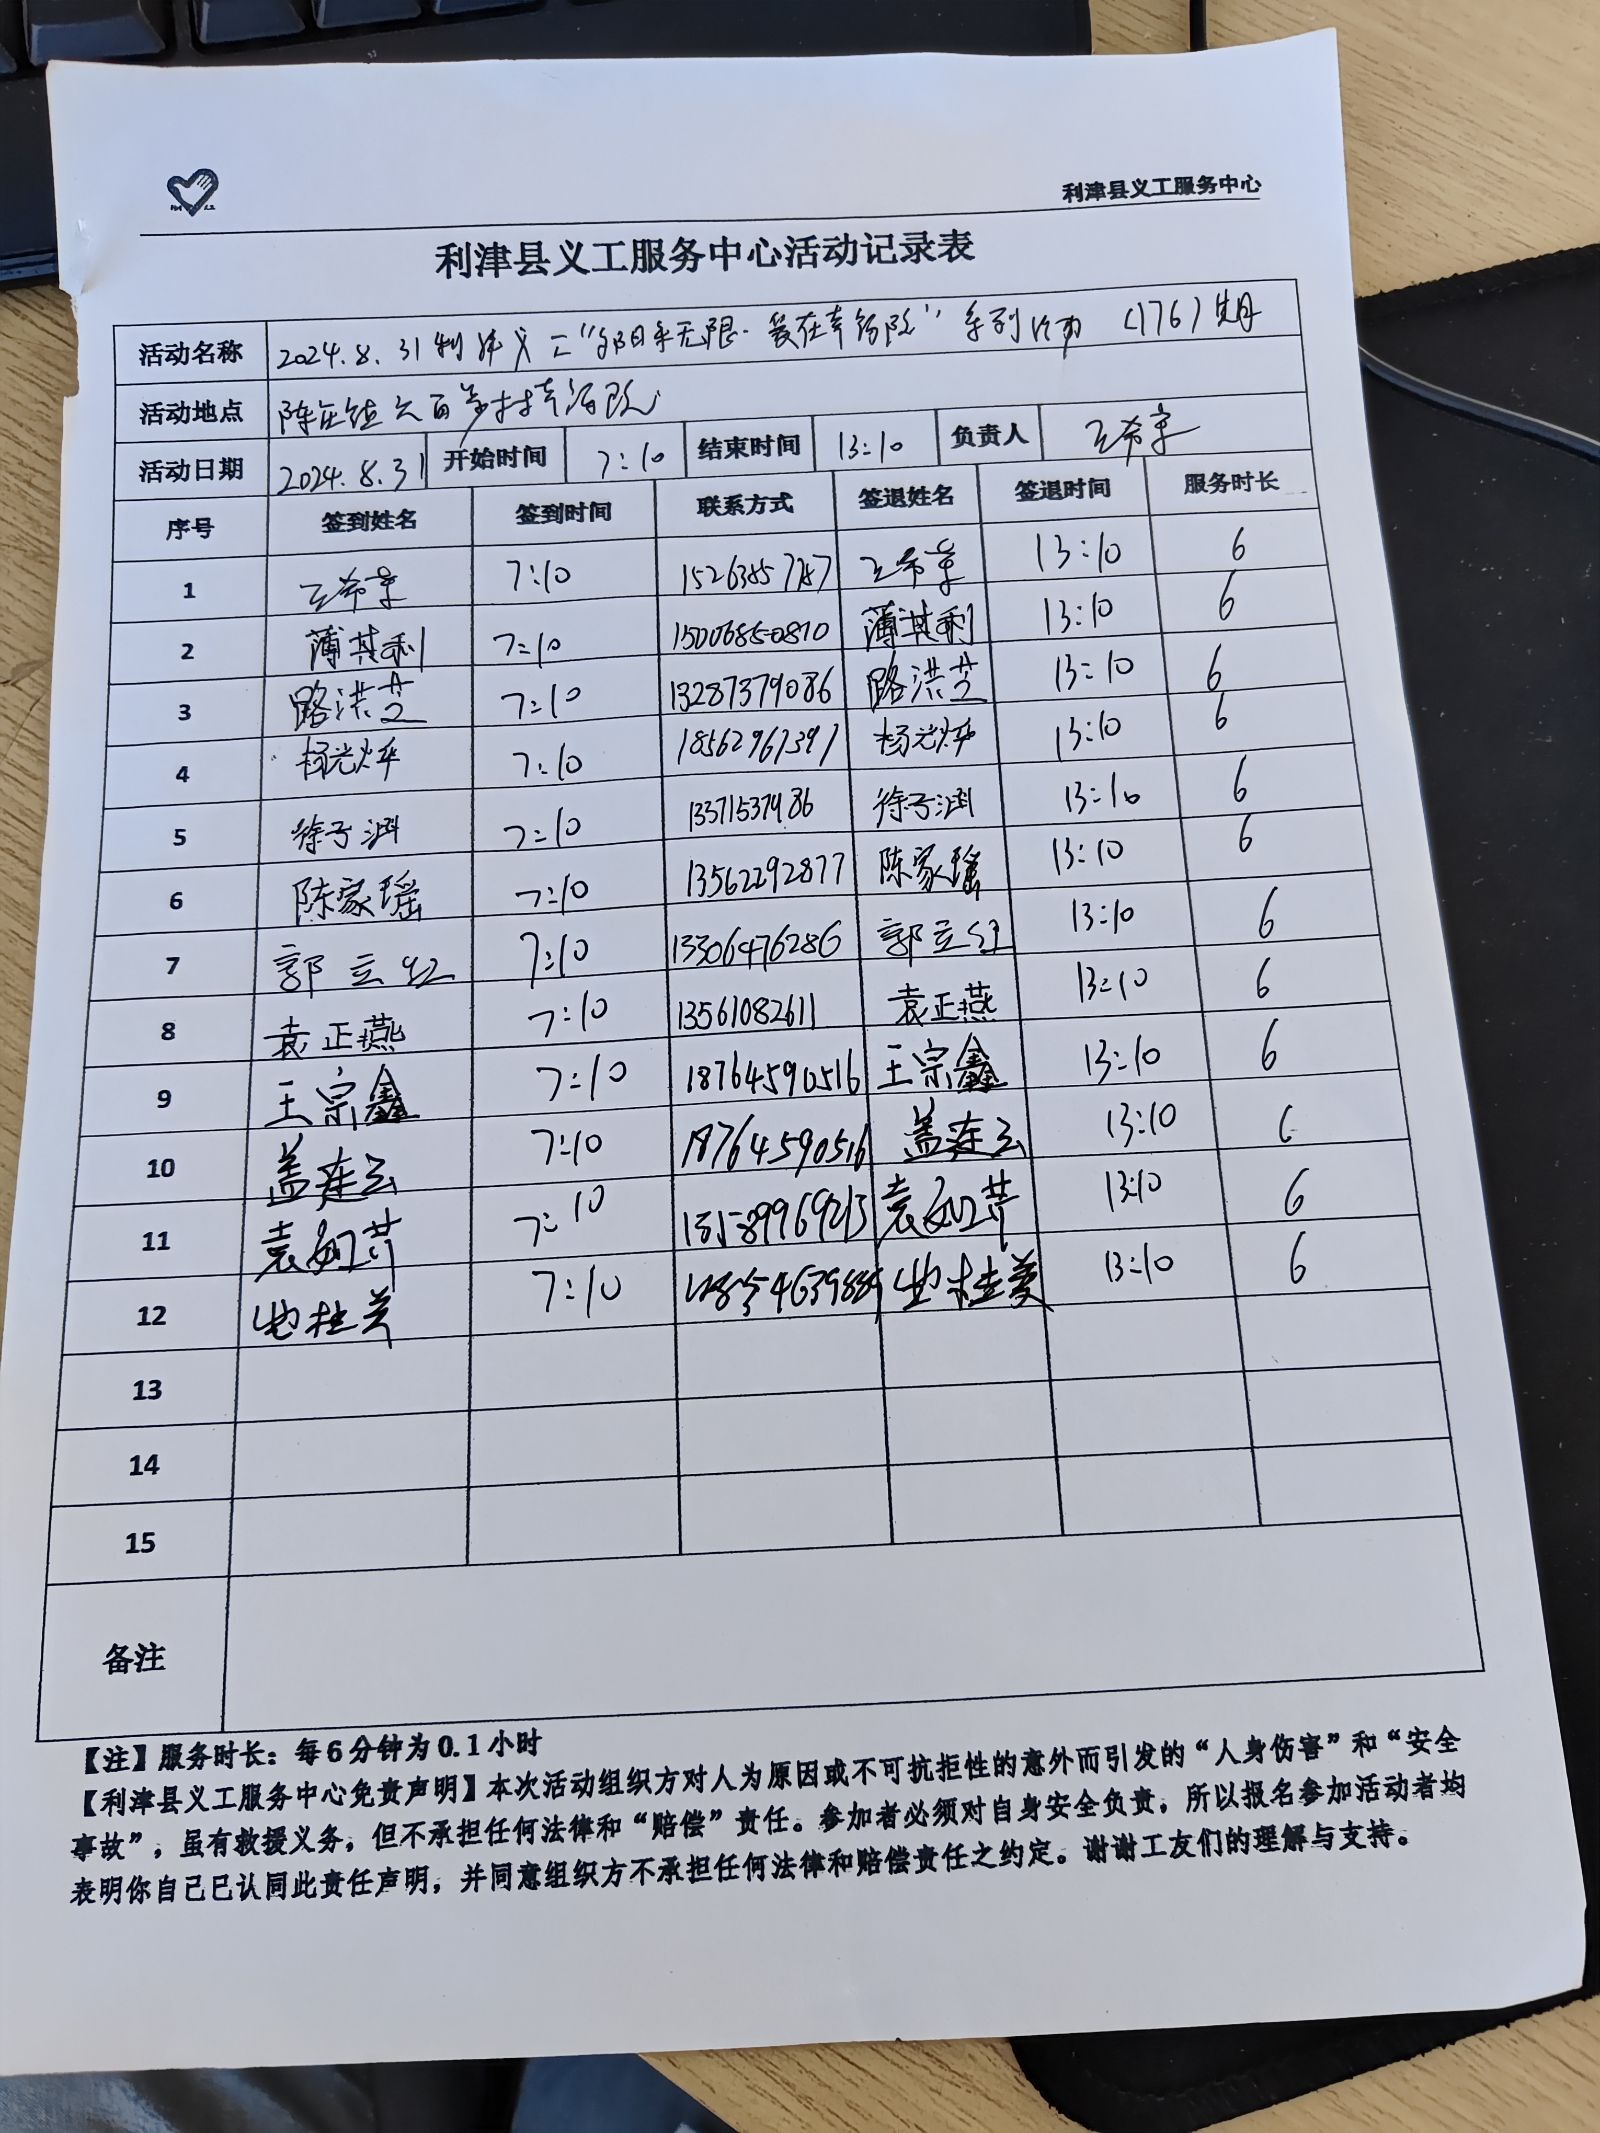 利津县义工服务中心
利津县义工服务中心活动记录表
活动名称 2024.8.31利津义工“夕阳采无限·爱在幸福院”系列活动 (176)期
活动地点 陈庄镇六百步村幸福院
活动日期 2024.8.31 开始时间 7:10 结束时间 13:10 负责人 王希
序号 签到姓名 签到时间 联系方式 签退姓名 签退时间 服务时长
1 王希 7:10 王希 13:10 6
2 薄其利 7:10 薄其利 13:10 6
3 路洪芝 7:10 13287379086 路洪芝 13:10 6
4 杨光烨 7:10 杨光烨 13:10 6
5 徐子涵 7:10 徐子涵 13:10 6
6 陈家瑶 7:10 13562292877 陈家瑶 13:10 6
7 郭立红 7:10 13306476286 郭立红 13:10 6
8 袁正燕 7:10 13561082611 袁正燕 13:10 6
9 王宗鑫 7:10 18764590516 王宗鑫 13:10 6
10 盖连云 7:10 18764590516 盖连云 13:10 6
11 袁如芹 7:10 袁如芹 13:10 6
12 7:10 桂美 13:10 6
13
14
15
备注
【注】服务时长：每6分钟为0.1小时
【利津县义工服务中心免责声明】本次活动组织方对人为原因或不可抗拒性的意外而引发的“人身伤害”和“安全
事故”，虽有救援义务，但不承担任何法律和“赔偿”责任。参加者必须对自身安全负责，所以报名参加活动者均
表明你自己已认同此责任声明，并同意组织方不承担任何法律和赔偿责任之约定。谢谢工友们的理解与支持。